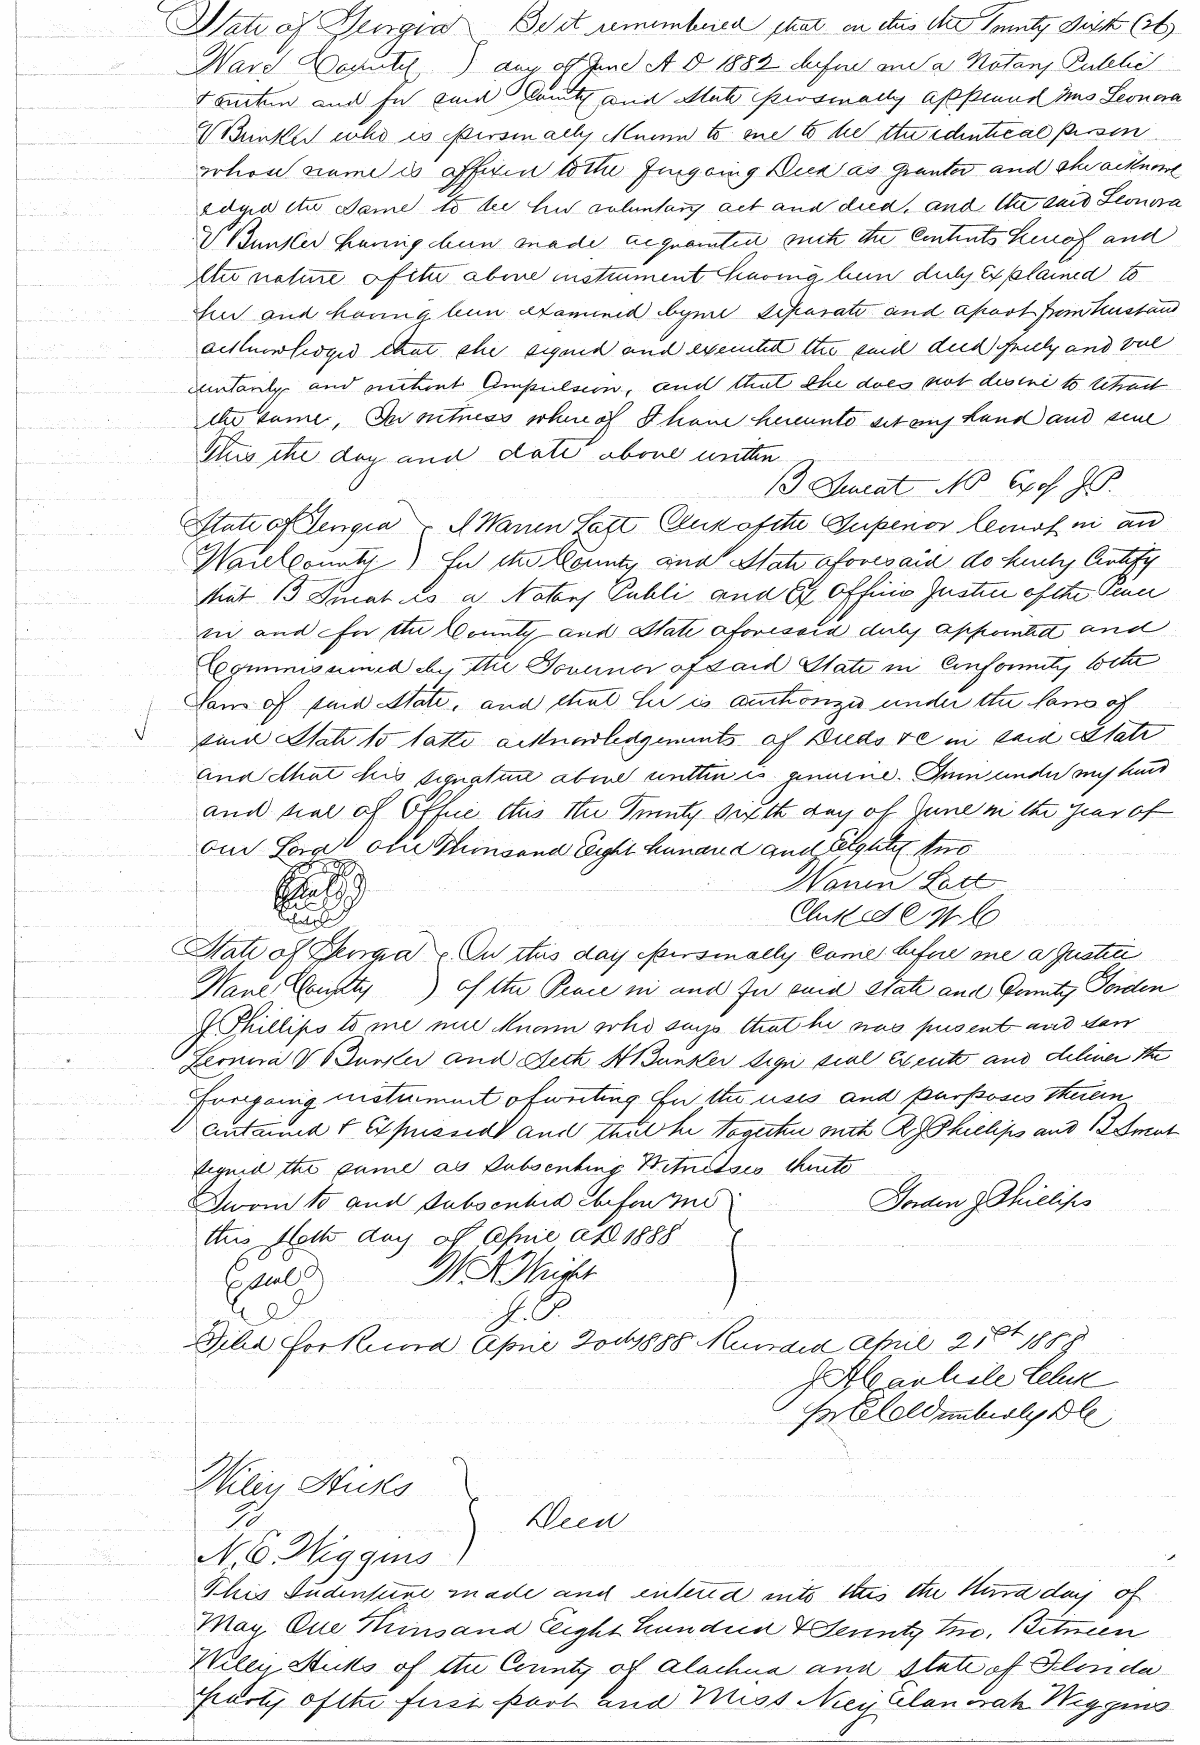 State of Georgia } Be it remembered that on this the Twenty Sixth (26)
Ware County ) day of June A D 1882 before me a Notary Public
+ within and for said County and State personally appeared Mrs Leonora
V Bunker who is personally Known to me to be the identical person
whose name is affixed to the foregoing Deed as grantor and she acknowl
edged the Same to be her voluntary act and deed, and the said Leonora
V Bunker having been made acquainted with the Contents hereof and
the nature of the above instrument having been duly Explained to
her and having been examined by me separate and apart from husband
acknowledged that she signed and executed the said deed freely and vol
untarily and without Compulsion, and that she does not desire to retract
the same, In witness where of I have hereunto set my hand and seal
This the day and date above written
B Sweat NP Ex of J.P.
State of Georgia } I Warren Lott Clerk of the Superior Court in an
Ware County ) for the County and State aforesaid do hereby Certify
that B Sweat is a Notary Publi and Ex Officio Justice of the Peace
in and for the County and State aforesaid duly appointed and
Commissioned by the Governor of said State in Conformity to the
laws of said State, and that he is authorized under the laws of
said State to take acknowledgements of Deeds &c in said State
and that his signature above written is genuine. Given under my hand
and seal of Office this the Twenty Sixth day of June in the year of
our Lord one Thousand Eight hundred and Eighty two
Warren Lott
Clerk S C W C
State of Georgia } On this day personally Came before me a Justice
Ware County ) of the Peace in and for said State and County Jorden
J Phillips to me well Known who says that he was present and saw
Leonora V Bunker and Seth H Bunker sign seal Execute and deliver the
foregoing instrument of writing for the uses and purposes therein
contained & Expressed and that he together with R J Phillips and B Sweat
signed the same as Subscribing Witnesses thereto
Sworn to and Subscribed before me } Jorden J Phillips
this day of April AD 1888
(Seal) W A Wright
J. P.
Filed for Record April 20th 1888 Recorded April 21st 1888
J A Carlisle Clerk
DC
Wiley Hicks
To } Deed
N. E. Wiggins
This Indenture made and entered into this the third day of
May One Thousand Eight hundred & Seventy two. Between
Wiley Hicks of the County of Alachua and State of Florida
party of the first part and Miss Nicy Elanorah Wiggins